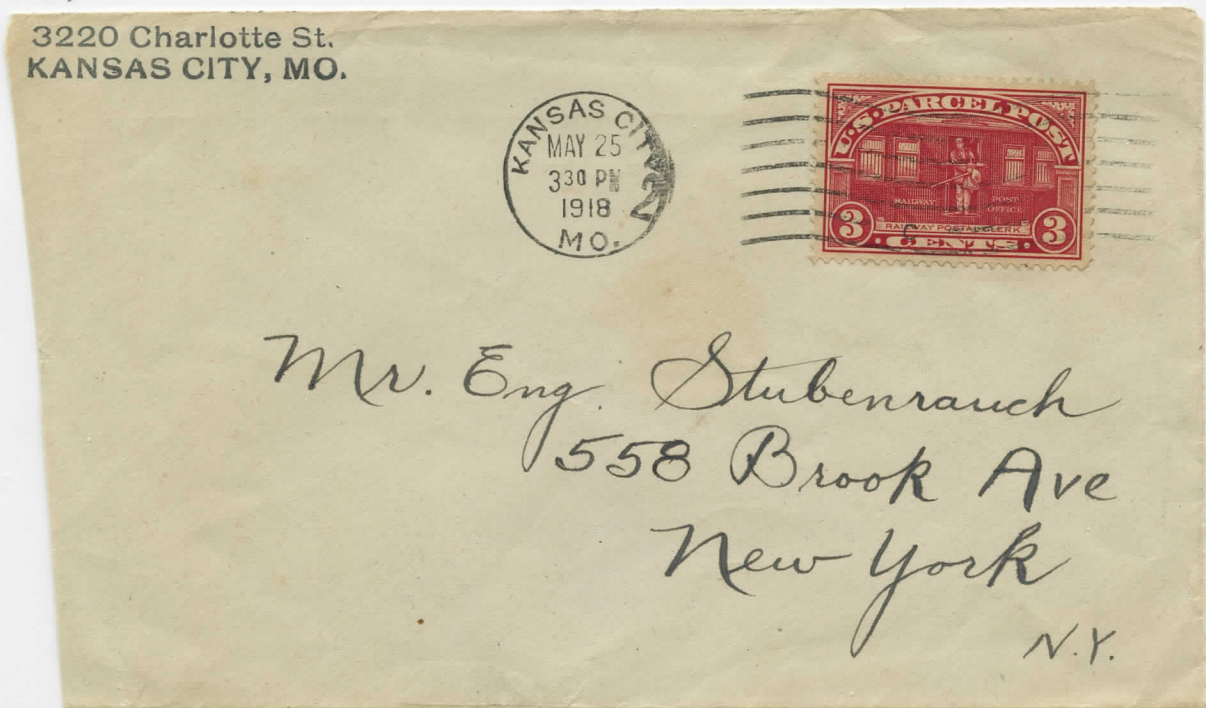 3220 Charlotte St.
KANSAS CITY, MO.
KANSAS CITY
MAY 25
3 30 PM
1918
MO.
2
U.S. PARCEL POST
RAILWAY POST
OFFICE
RAILWAY POSTAL CLERK
3 CENTS 3
Mr. Eng. Stubenrauch
558 Brook Ave
New York
N.Y.